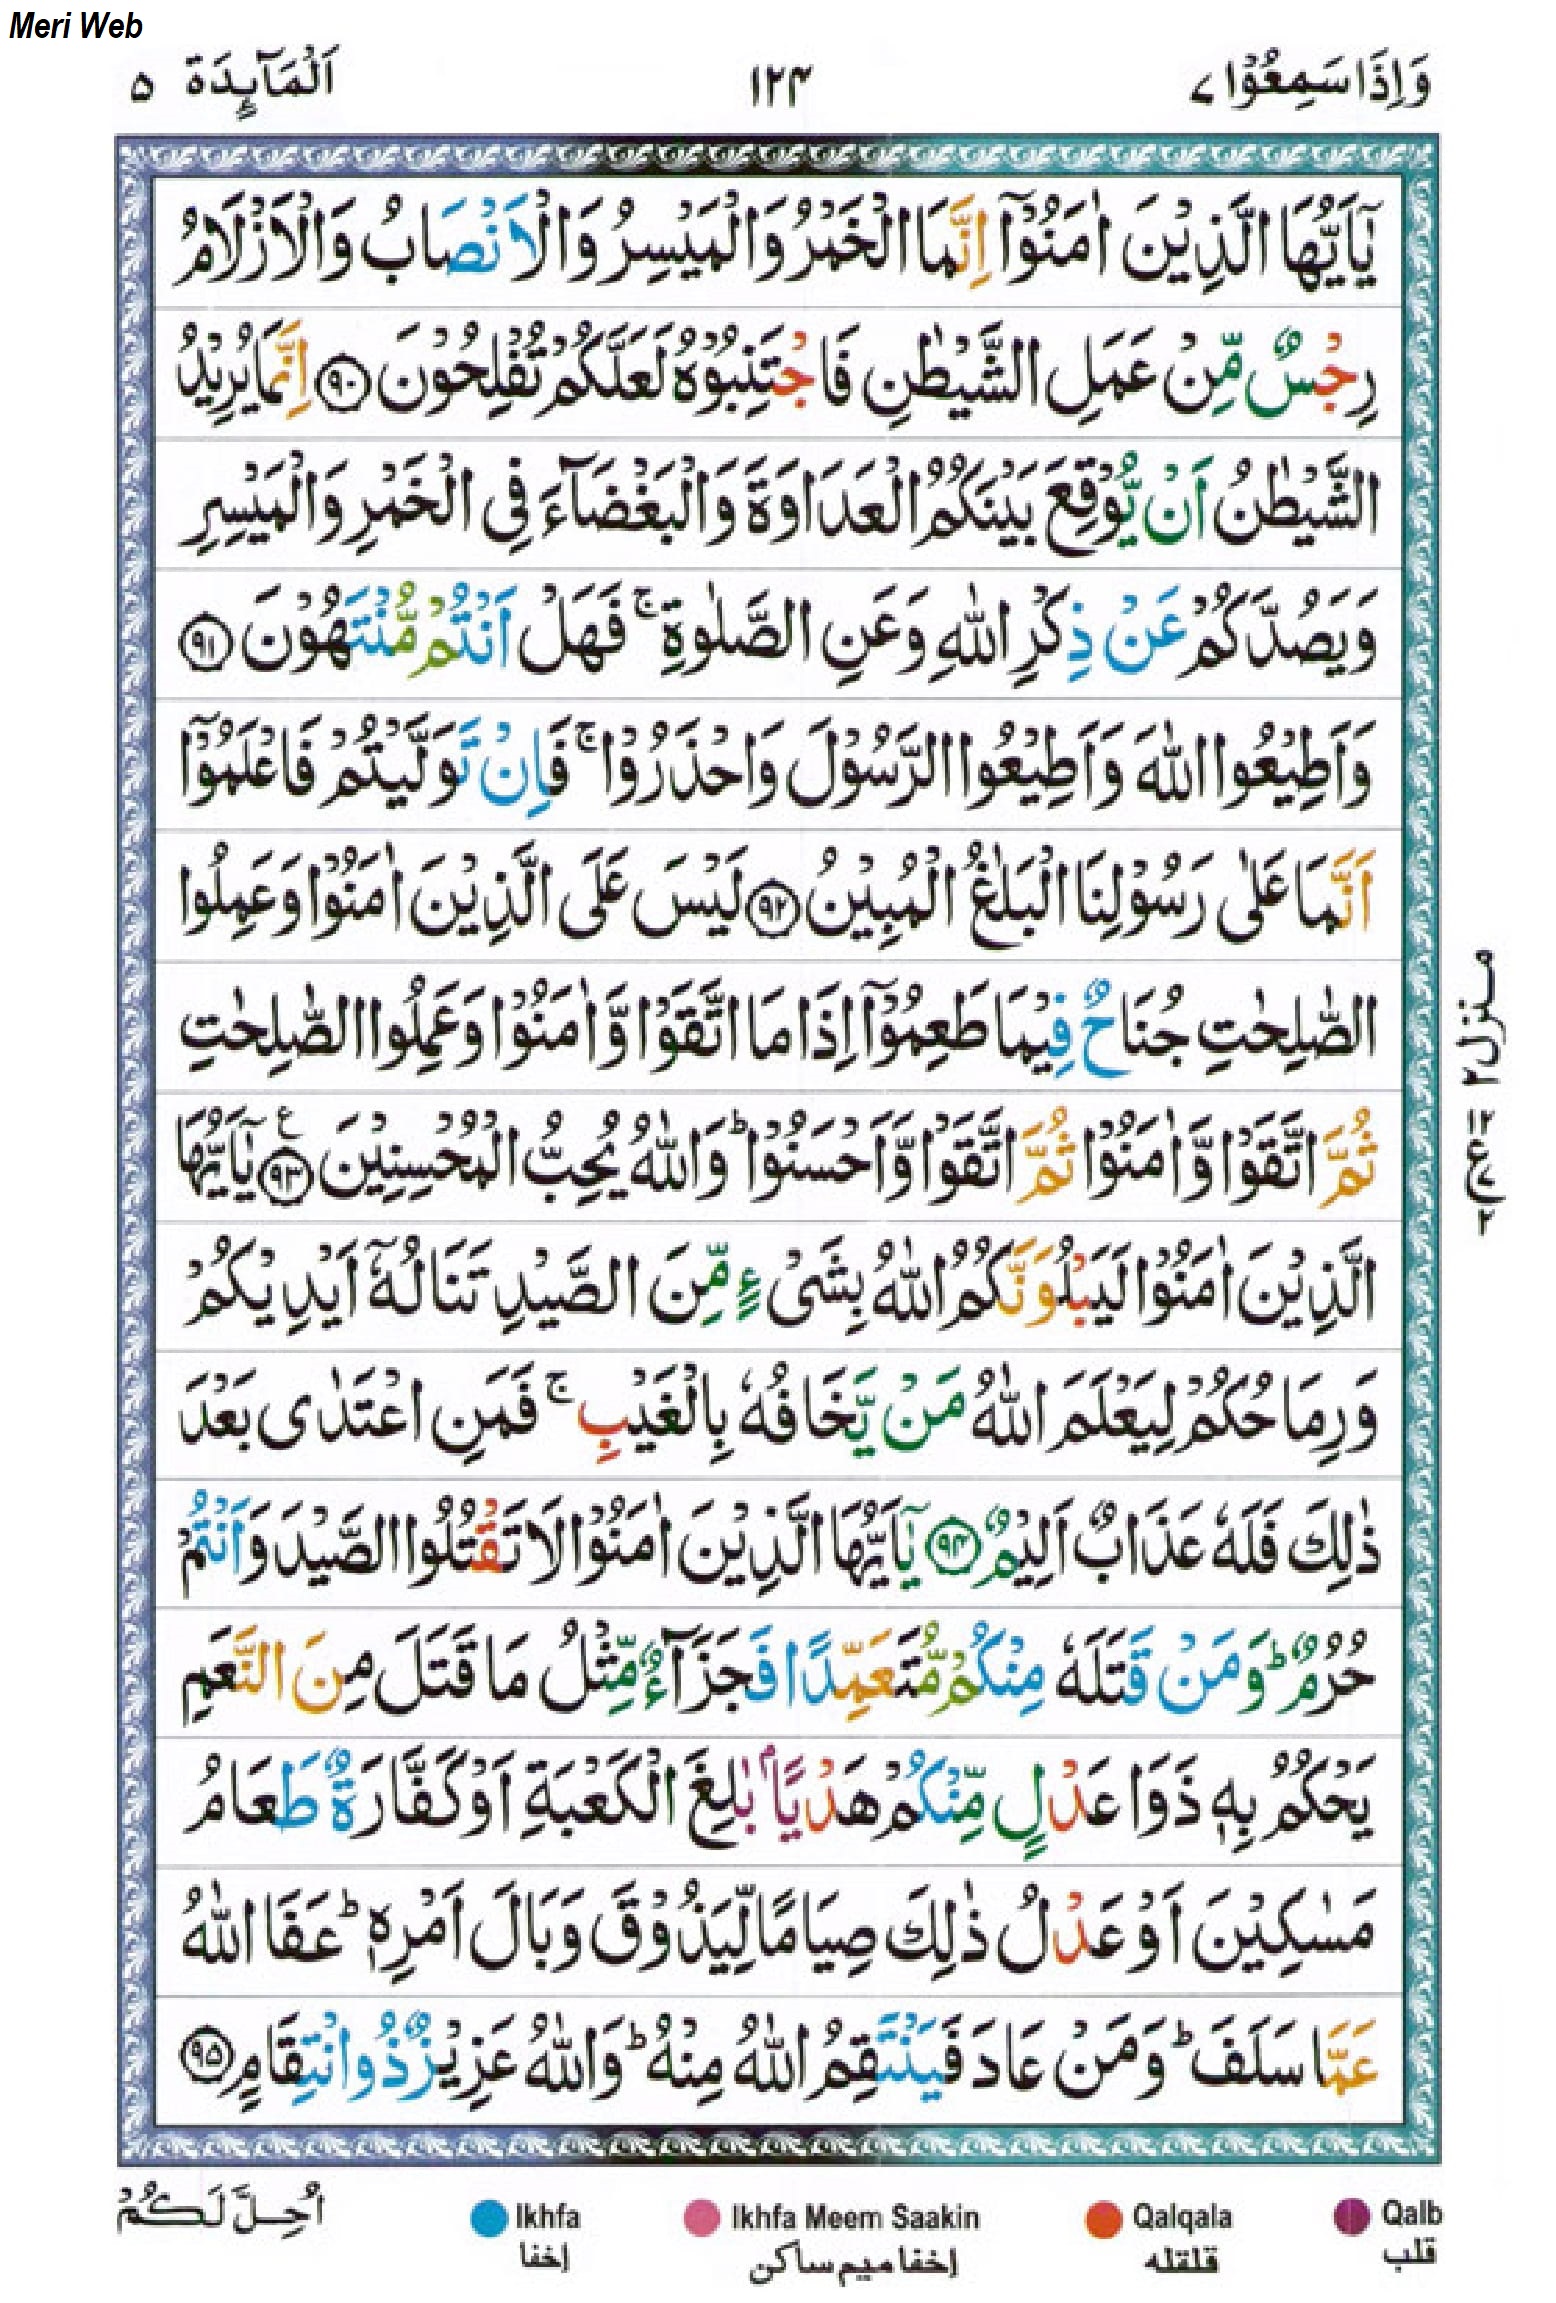 Meri Web
وَاِذَا سَمِعُوْا ٧ ١٢٤ اَلْمَآىِٕدَة ٥
يٰۤاَيُّهَا الَّذِيْنَ اٰمَنُوْۤا اِنَّمَا الْخَمْرُ وَالْمَيْسِرُ وَالْاَنْصَابُ وَالْاَزْلَامُ
رِجْسٌ مِّنْ عَمَلِ الشَّيْطٰنِ فَاجْتَنِبُوْهُ لَعَلَّكُمْ تُفْلِحُوْنَ ۹۰ اِنَّمَا يُرِيْدُ
الشَّيْطٰنُ اَنْ يُّوْقِعَ بَيْنَكُمُ الْعَدَاوَةَ وَالْبَغْضَآءَ فِى الْخَمْرِ وَالْمَيْسِرِ
وَيَصُدَّكُمْ عَنْ ذِكْرِ اللّٰهِ وَعَنِ الصَّلٰوةِ ۚ فَهَلْ اَنْتُمْ مُّنْتَهُوْنَ ۹۱
وَاَطِيْعُوا اللّٰهَ وَاَطِيْعُوا الرَّسُوْلَ وَاحْذَرُوْا ۚ فَاِنْ تَوَلَّيْتُمْ فَاعْلَمُوْۤا
اَنَّمَا عَلٰى رَسُوْلِنَا الْبَلٰغُ الْمُبِيْنُ ۹۲ لَيْسَ عَلَى الَّذِيْنَ اٰمَنُوْا وَعَمِلُوا
الصّٰلِحٰتِ جُنَاحٌ فِيْمَا طَعِمُوْۤا اِذَا مَا اتَّقَوْا وَّاٰمَنُوْا وَعَمِلُوا الصّٰلِحٰتِ
ثُمَّ اتَّقَوْا وَّاٰمَنُوْا ثُمَّ اتَّقَوْا وَّاَحْسَنُوْا ؕ وَاللّٰهُ يُحِبُّ الْمُحْسِنِيْنَ ۹۳ ع يٰۤاَيُّهَا
الَّذِيْنَ اٰمَنُوْا لَيَبْلُوَنَّكُمُ اللّٰهُ بِشَىْءٍ مِّنَ الصَّيْدِ تَنَالُهٗۤ اَيْدِيْكُمْ
وَرِمَاحُكُمْ لِيَعْلَمَ اللّٰهُ مَنْ يَّخَافُهٗ بِالْغَيْبِ ۚ فَمَنِ اعْتَدٰى بَعْدَ
ذٰلِكَ فَلَهٗ عَذَابٌ اَلِيْمٌ ۹۴ يٰۤاَيُّهَا الَّذِيْنَ اٰمَنُوْا لَا تَقْتُلُوا الصَّيْدَ وَاَنْتُمْ
حُرُمٌ ؕ وَمَنْ قَتَلَهٗ مِنْكُمْ مُّتَعَمِّدًا فَجَزَآءٌ مِّثْلُ مَا قَتَلَ مِنَ النَّعَمِ
يَحْكُمُ بِهٖ ذَوَا عَدْلٍ مِّنْكُمْ هَدْيًاۢ بٰلِغَ الْكَعْبَةِ اَوْ كَفَّارَةٌ طَعَامُ
مَسٰكِيْنَ اَوْ عَدْلُ ذٰلِكَ صِيَامًا لِّيَذُوْقَ وَبَالَ اَمْرِهٖ ؕ عَفَا اللّٰهُ
عَمَّا سَلَفَ ؕ وَمَنْ عَادَ فَيَنْتَقِمُ اللّٰهُ مِنْهُ ؕ وَاللّٰهُ عَزِيْزٌ ذُو انْتِقَامٍ ۹۵
منزل ٢
١٢ ع ٢
اُحِلَّ لَكُمْ
Ikhfa Ikhfa Meem Saakin Qalqala Qalb
إخفا إخفا میم ساکن قلقله قلب